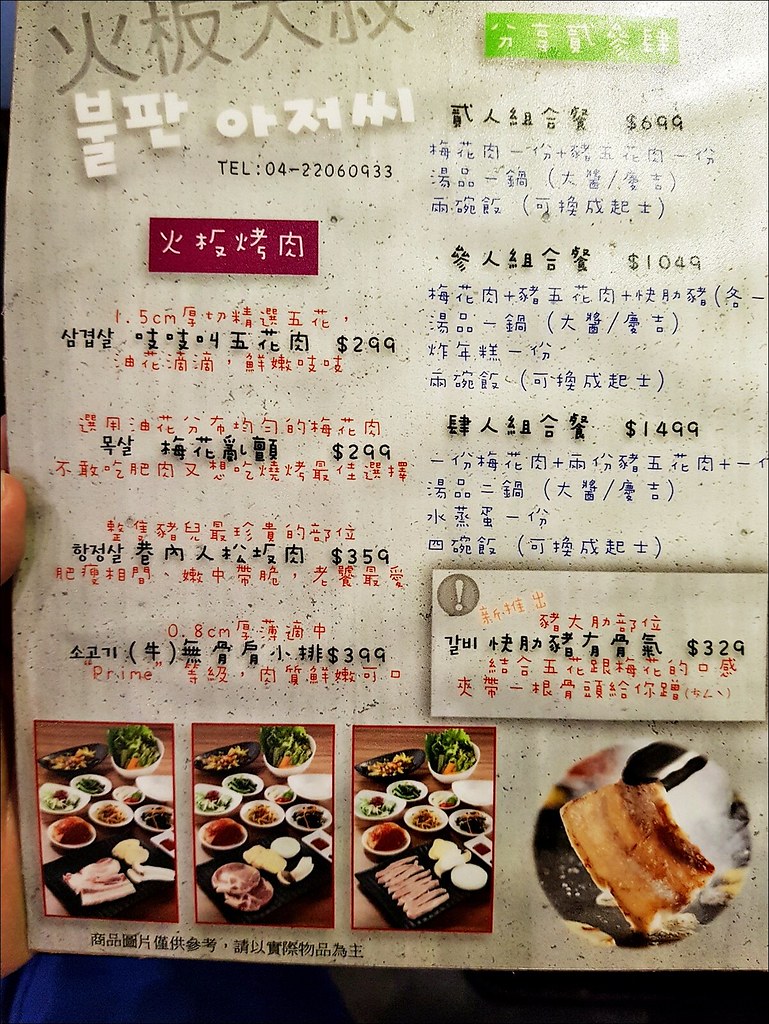 火板大叔
불판 아저씨
TEL:04-22060933
火板烤肉
1.5cm厚切精選五花，
삼겹살 吱吱叫五花肉 $299
油花滴滴，鮮嫩吱吱
選用油花分布均勻的梅花肉
목살 梅花亂顫 $299
不敢吃肥肉又想吃燒烤最佳選擇
整隻豬兒最珍貴的部位
항정살 巷內人松坂肉 $359
肥瘦相間、嫩中帶脆，老饕最愛
0.8cm厚薄適中
소고기(牛)無骨肩小排$399
"Prime"等級，肉質鮮嫩可口
商品圖片僅供參考，請以實際物品為主
分享貳參肆
貳人組合餐 $699
梅花肉一份+豬五花肉一份
湯品一鍋 (大醬/慶吉)
兩碗飯 (可換成起士)
參人組合餐 $1049
梅花肉+豬五花肉+快肋豬(各一
湯品一鍋 (大醬/慶吉)
炸年糕一份
兩碗飯 (可換成起士)
肆人組合餐 $1499
一份梅花肉+兩份豬五花肉+一
湯品二鍋 (大醬/慶吉)
水蒸蛋一份
四碗飯 (可換成起士)
!
新推出
豬大肋部位
갈비 快肋豬有骨氣 $329
結合五花跟梅花的口感
夾帶一根骨頭給你蹭(ㄎㄥˋ)